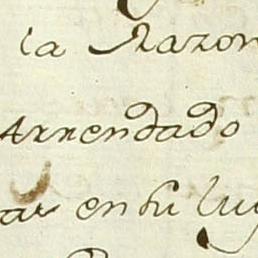 la Razon
Arrendado
ar en su lug